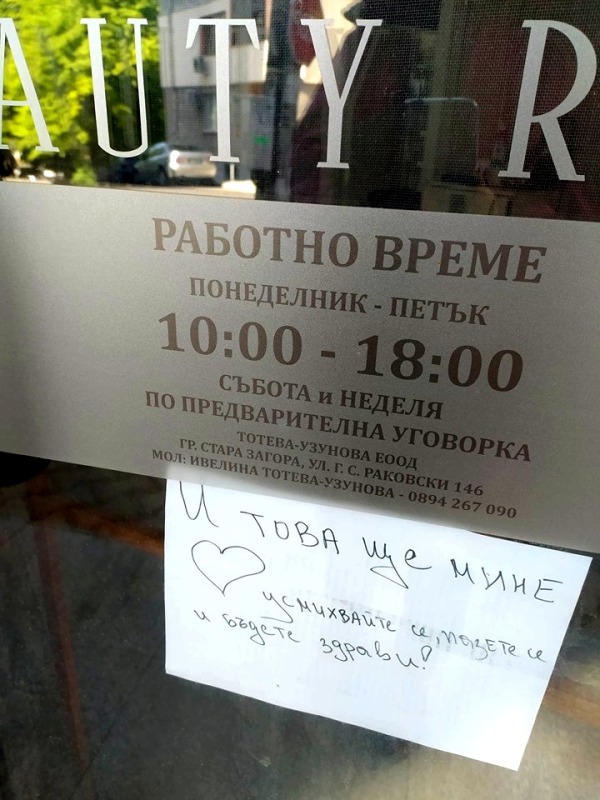 AUTY R
РАБОТНО ВРЕМЕ
ПОНЕДЕЛНИК - ПЕТЪК
10:00 - 18:00
СЪБОТА и НЕДЕЛЯ
ПО ПРЕДВАРИТЕЛНА УГОВОРКА
ТОТЕВА-УЗУНОВА ЕООД
ГР. СТАРА ЗАГОРА, УЛ. Г. С. РАКОВСКИ 146
МОЛ: ИВЕЛИНА ТОТЕВА-УЗУНОВА - 0894 267 090
И ТОВА ще МИНЕ
усмихвайте се, пазете се
и бъдете здрави!